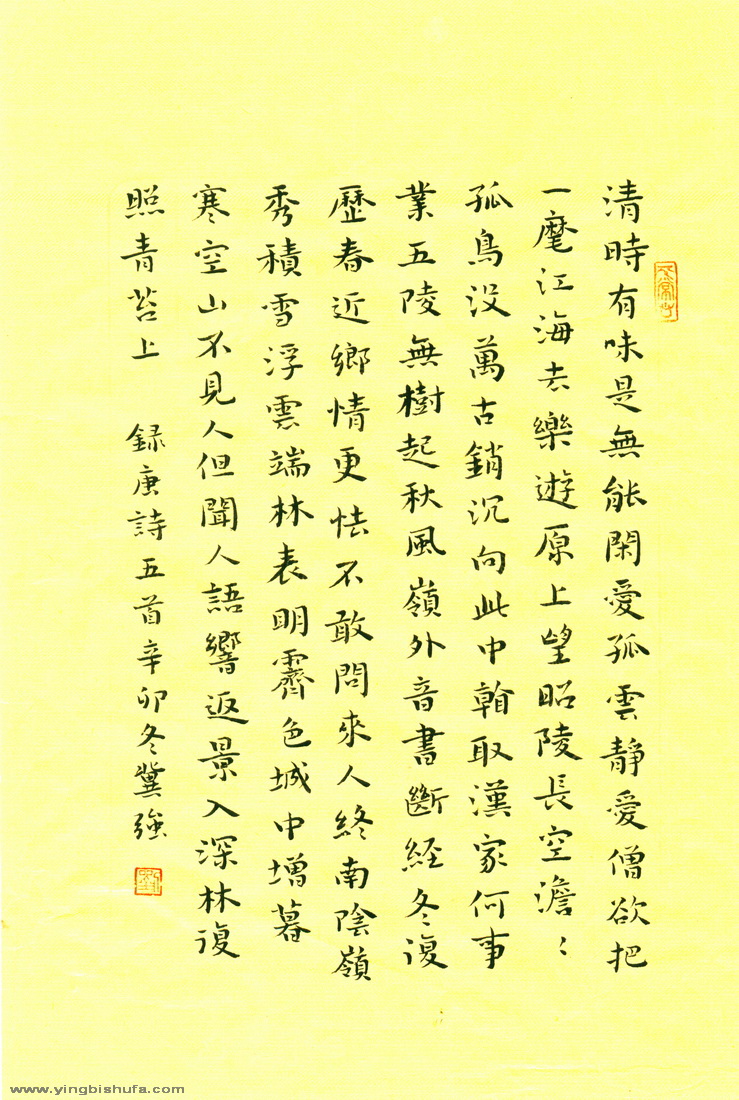 清時有味是無能閑愛孤雲靜愛僧欲把
一麾江海去樂遊原上望昭陵長空澹〻
孤鳥没萬古銷沉向此中取漢家何事
業五陵無樹起秋風嶺外音書斷經冬復
歷春近鄉情更怯不敢問來人終南陰嶺
秀積雪浮雲端林表明霽色城中增暮
寒空山不見人但聞人語響返景入深林復
照青苔上 録唐詩五首辛卯冬冀強
www.yingbishufa.com